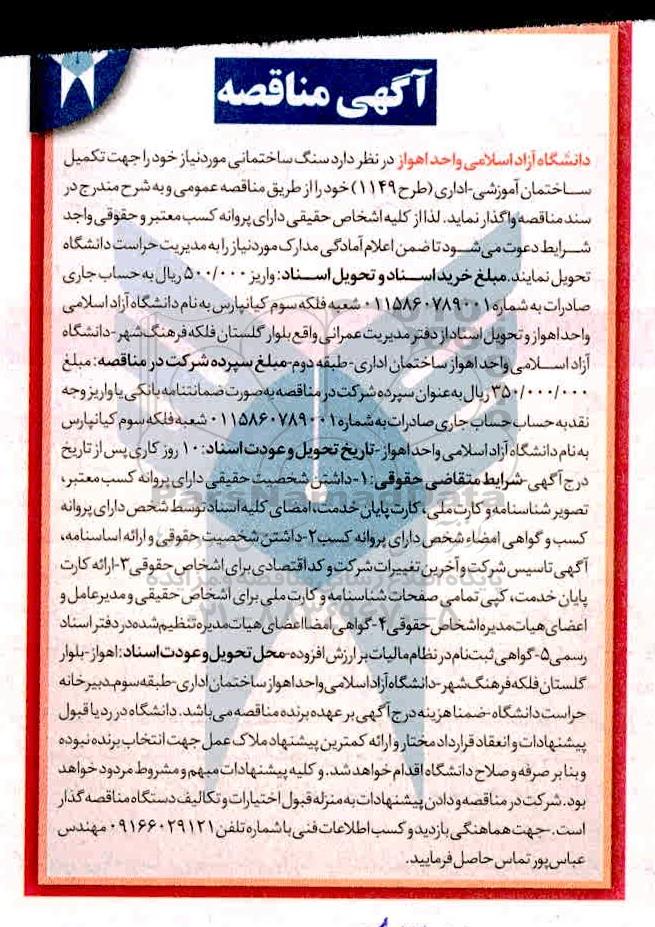 آگهی مناقصه
دانشگاه آزاد اسلامی واحد اهواز در نظر دارد سنگ ساختمانی موردنیاز خود را جهت تکمیل
ساختمان آموزشی-اداری (طرح ۱۱۴۹) خود را از طریق مناقصه عمومی و به شرح مندرج در
سند مناقصه واگذار نماید. لذا از کلیه اشخاص حقیقی دارای پروانه کسب معتبر و حقوقی واجد
شرایط دعوت می‌شود تا ضمن اعلام آمادگی مدارک موردنیاز را به مدیریت حراست دانشگاه
تحویل نمایند. مبلغ خرید اسناد و تحویل اسناد: واریز ۵۰۰/۰۰۰ ریال به حساب جاری
صادرات به شماره ۰۱۱۵۸۶۰۷۸۹۰۰۱ شعبه فلکه سوم کیانپارس به نام دانشگاه آزاد اسلامی
واحد اهواز و تحویل اسناد از دفتر مدیریت عمرانی واقع بلوار گلستان فلکه فرهنگ شهر-دانشگاه
آزاد اسلامی واحد اهواز ساختمان اداری-طبقه دوم-مبلغ سپرده شرکت در مناقصه: مبلغ
۳۵۰/۰۰۰/۰۰۰ ریال به عنوان سپرده شرکت در مناقصه به صورت ضمانتنامه بانکی یا واریز وجه
نقد به حساب حساب جاری صادرات به شماره ۰۱۱۵۸۶۰۷۸۹۰۰۱ شعبه فلکه سوم کیانپارس
به نام دانشگاه آزاد اسلامی واحد اهواز-تاریخ تحویل و عودت اسناد: ۱۰ روز کاری پس از تاریخ
درج آگهی-شرایط متقاضی حقوقی: ۱-داشتن شخصیت حقیقی دارای پروانه کسب معتبر،
تصویر شناسنامه و کارت ملی، کارت پایان خدمت، امضای کلیه اسناد توسط شخص دارای پروانه
کسب و گواهی امضاء شخص دارای پروانه کسب ۲-داشتن شخصیت حقوقی و ارائه اساسنامه،
آگهی تاسیس شرکت و آخرین تغییرات شرکت و کد اقتصادی برای اشخاص حقوقی ۳-ارائه کارت
پایان خدمت، کپی تمامی صفحات شناسنامه و کارت ملی برای اشخاص حقیقی و مدیرعامل و
اعضای هیات مدیره اشخاص حقوقی ۴-گواهی امضا اعضای هیات مدیره تنظیم شده در دفتر اسناد
رسمی ۵-گواهی ثبت نام در نظام مالیات بر ارزش افزوده-محل تحویل و عودت اسناد: اهواز-بلوار
گلستان فلکه فرهنگ شهر-دانشگاه آزاد اسلامی واحد اهواز ساختمان اداری-طبقه سوم دبیرخانه
حراست دانشگاه-ضمنا هزینه درج آگهی بر عهده برنده مناقصه می‌باشد. دانشگاه در رد یا قبول
پیشنهادات و انعقاد قرارداد مختار و ارائه کمترین پیشنهاد ملاک عمل جهت انتخاب برنده نبوده
و بنا بر صرفه و صلاح دانشگاه اقدام خواهد شد. و کلیه پیشنهادات مبهم و مشروط مردود خواهد
بود. شرکت در مناقصه و دادن پیشنهادات به منزله قبول اختیارات و تکالیف دستگاه مناقصه گذار
است.-جهت هماهنگی بازدید و کسب اطلاعات فنی با شماره تلفن ۰۹۱۶۶۰۲۹۱۲۱ مهندس
عباس پور تماس حاصل فرمایید.